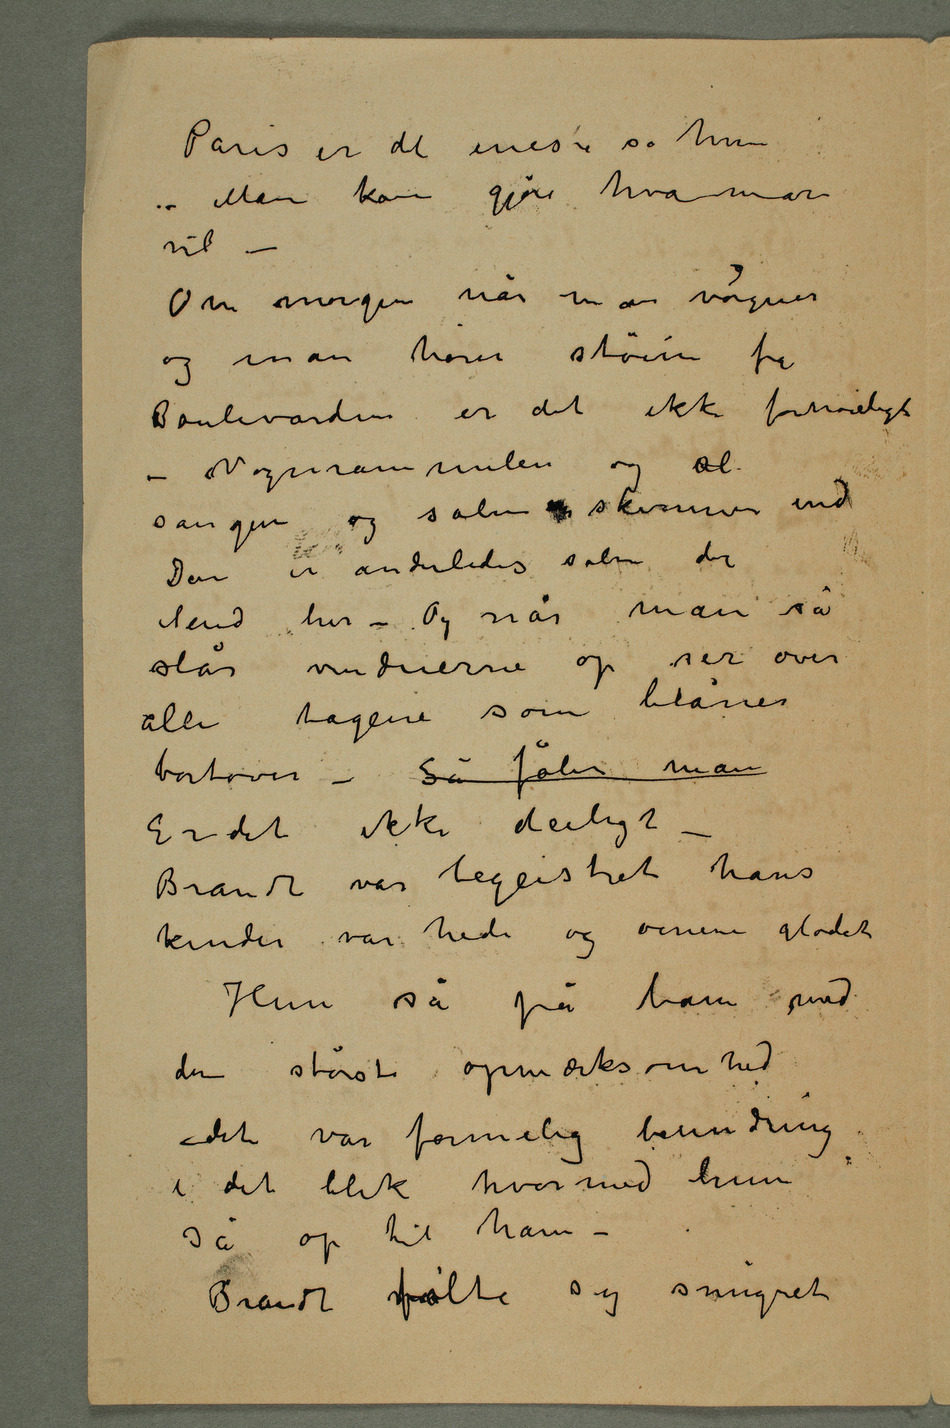 Paris er det eneste sa hun
– Man kan gjøre hva man
vil –
Om morgen når man vågner
og man hører støien fra
Boulevarden er det ikke fornøieligt
– Vognrammelen og al
sangen og solen skinner ind
Den er anderledes solen der
end her – Og når man så
slår vinduerne op ser over
alle tagene som blåner
bortover – Så føler man
Er det ikke deiligt –
Brandt var begeistret hans
kinder var hede og øinene glødet
Hun så på ham med
den største opmærksomhed
– det var formelig beundring
i det blik hvormed hun
så op til ham –
Brandt følte sig smigret